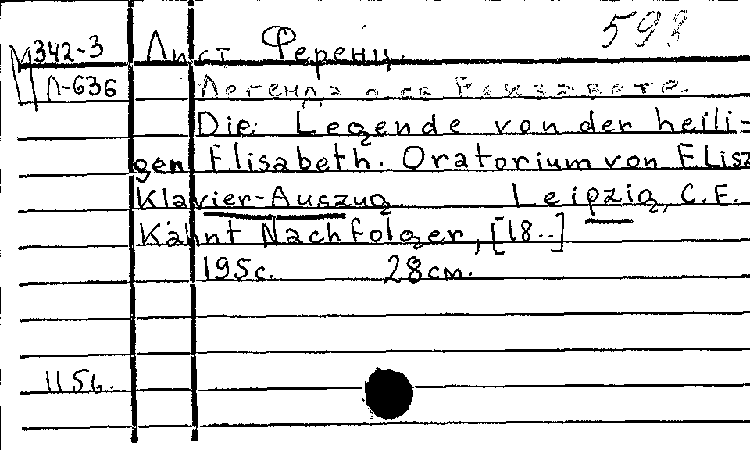 598
М342-3 Лист Ференц.
Л-636 Легенда о св Елизавете.
Die Legende von der heili=
gen Elisabeth. Oratorium von F.Lisz
Klavier-Auszug Leipzig, C.E.
Kahnt Nachfolger, [18..]
195с. 28см.